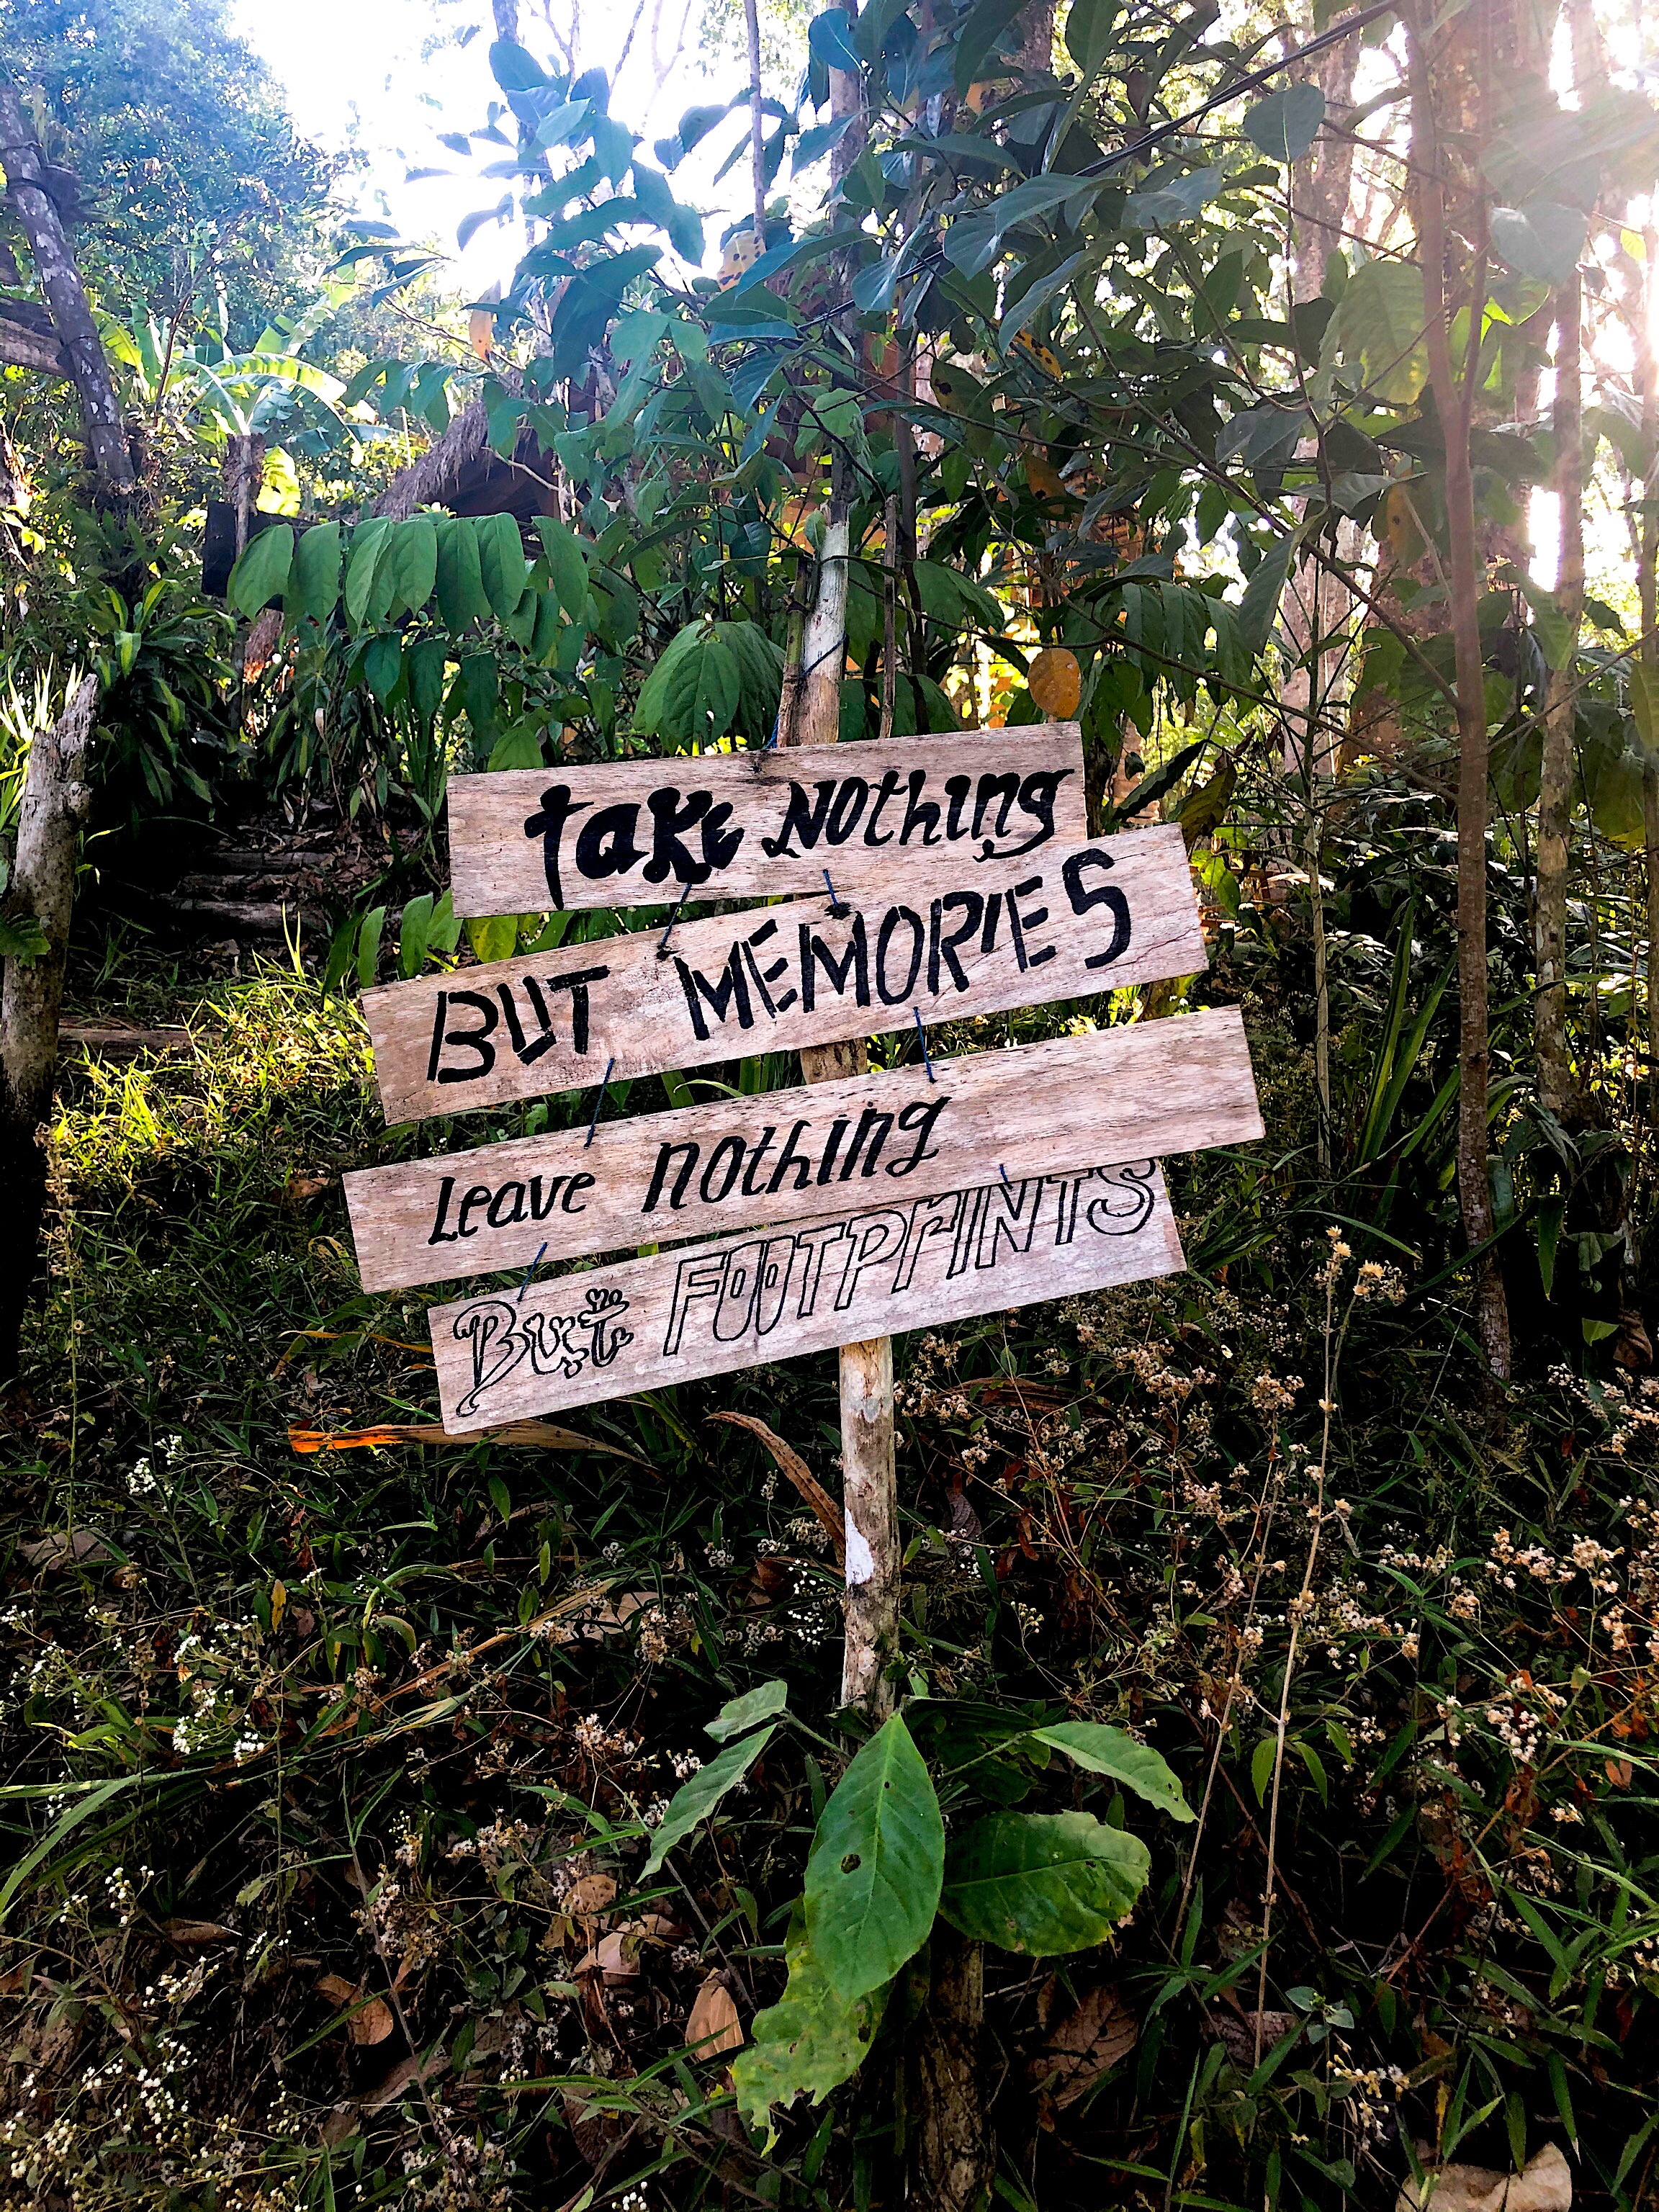 take Nothing
BUT MEMORIES
Leave nothing
But FOOTPRINTS